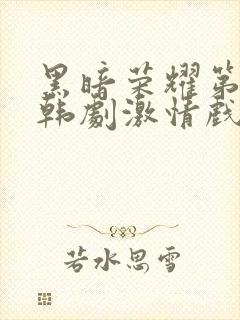 黑暗荣耀第
韩剧激情戏
若水思雪